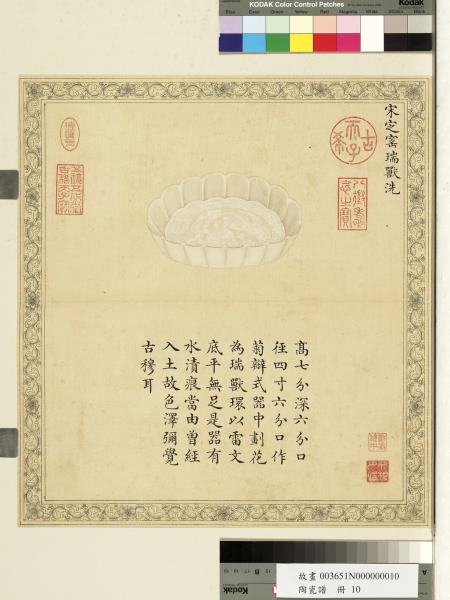 KODAK Color Control Patches
Kodak
Blue
Cyan
Green
Yellow
Red
Magenta
White
3/Color
Black
宋定窰瑞獸洗
古
天子
希
八徵耄
念之寶
高七分深六分口
徑四寸六分口作
菊瓣式器中劃花
為瑞獸環以雷文
底平無足是器有
水漬痕當由曾經
入土故色澤彌覺
古穆耳
故畫 003651N000000010
陶瓷譜 冊 10